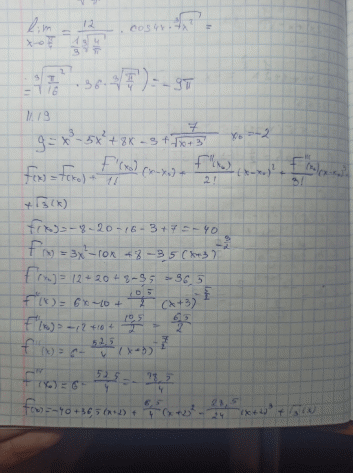 lim x→π/2 = 12 / (1/3 ∛(4/π)) · cos4x · ∛x² =
= ∛(π²/16) · 36 · ∛(π/4)) = -9π
11.19
y = x³ - 5x² + 8x - 3 + 7/√(x+3)   x₀ = -2
f(x) = f(x₀) + f'(x₀)/1! (x-x₀) + f''(x₀)/2! (x-x₀)² + f'''(x₀)/3! (x-x₀)³
+ r₃(x)
f(x₀) = -8 - 20 - 16 - 3 + 7 = -40
f'(x) = 3x² - 10x + 8 - 3,5 (x+3)^(-3/2)
f'(x₀) = 12 + 20 + 8 - 3,5 = 36,5
f''(x) = 6x - 10 + 10,5/2 (x+3)^(-5/2)
f''(x₀) = -12 + 10 + 10,5/2 = 6,5/2
f'''(x) = 6 - 52,5/4 (x+3)^(-7/2)
f'''(x₀) = 6 - 52,5/4 = -
f(x) = -40 + 36,5(x+2) + 6,5/4 (x+2)² - /24 (x+2)³ + (x)